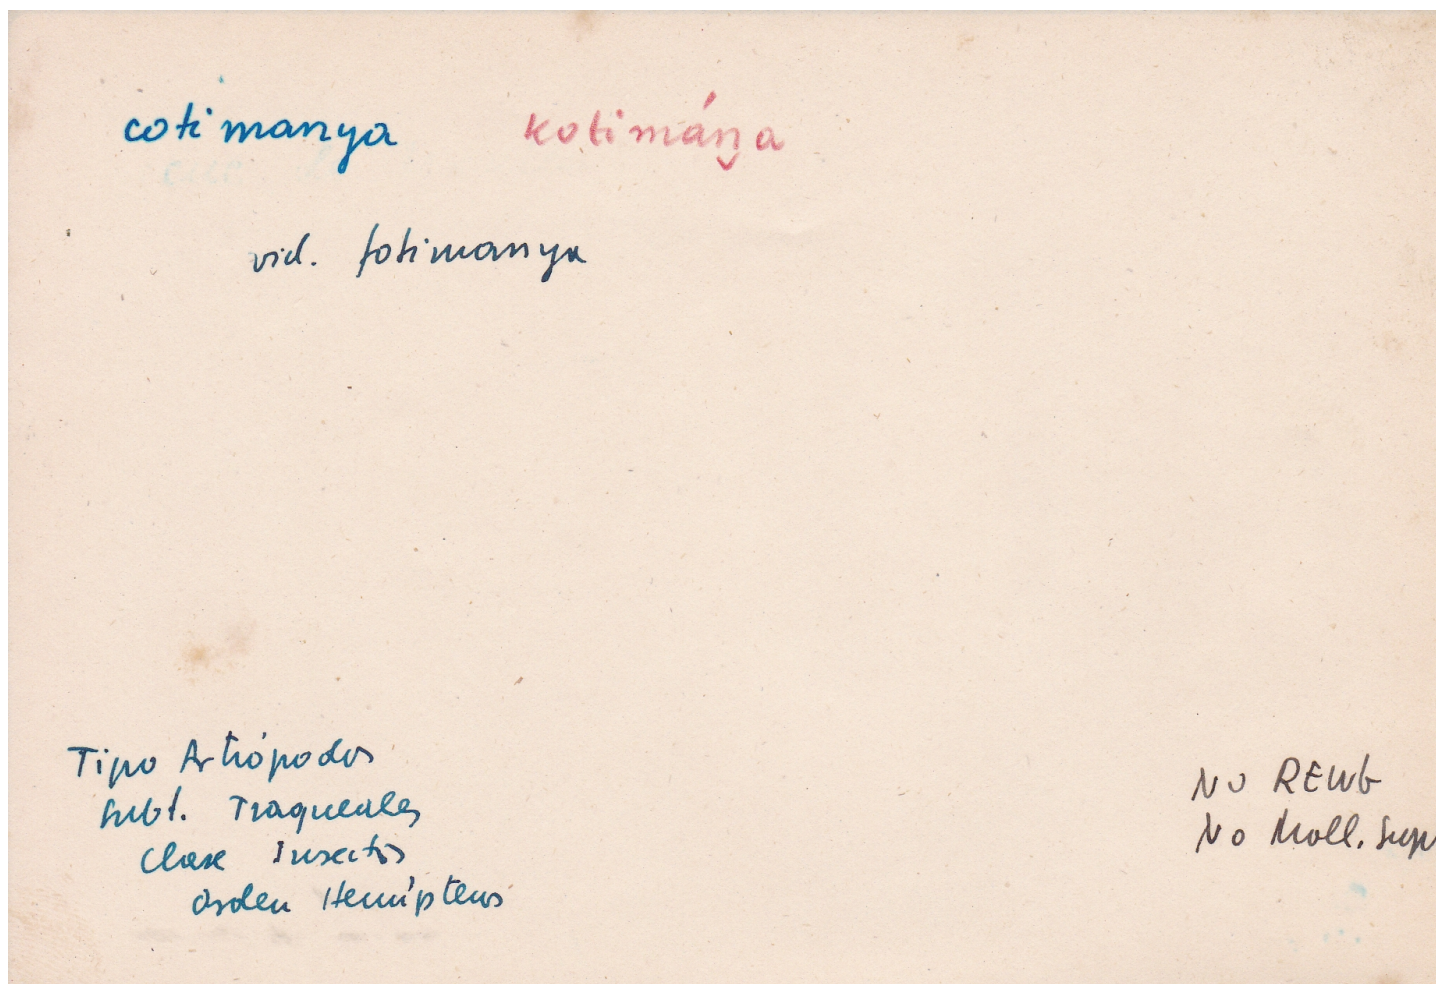 cotimanya kotimán̮a
vid. fotimanya
Tipo Artrópodos
Subt. Traqueales
Clase Insectos
Orden Hemípteros
No REWb
No Moll. Supl